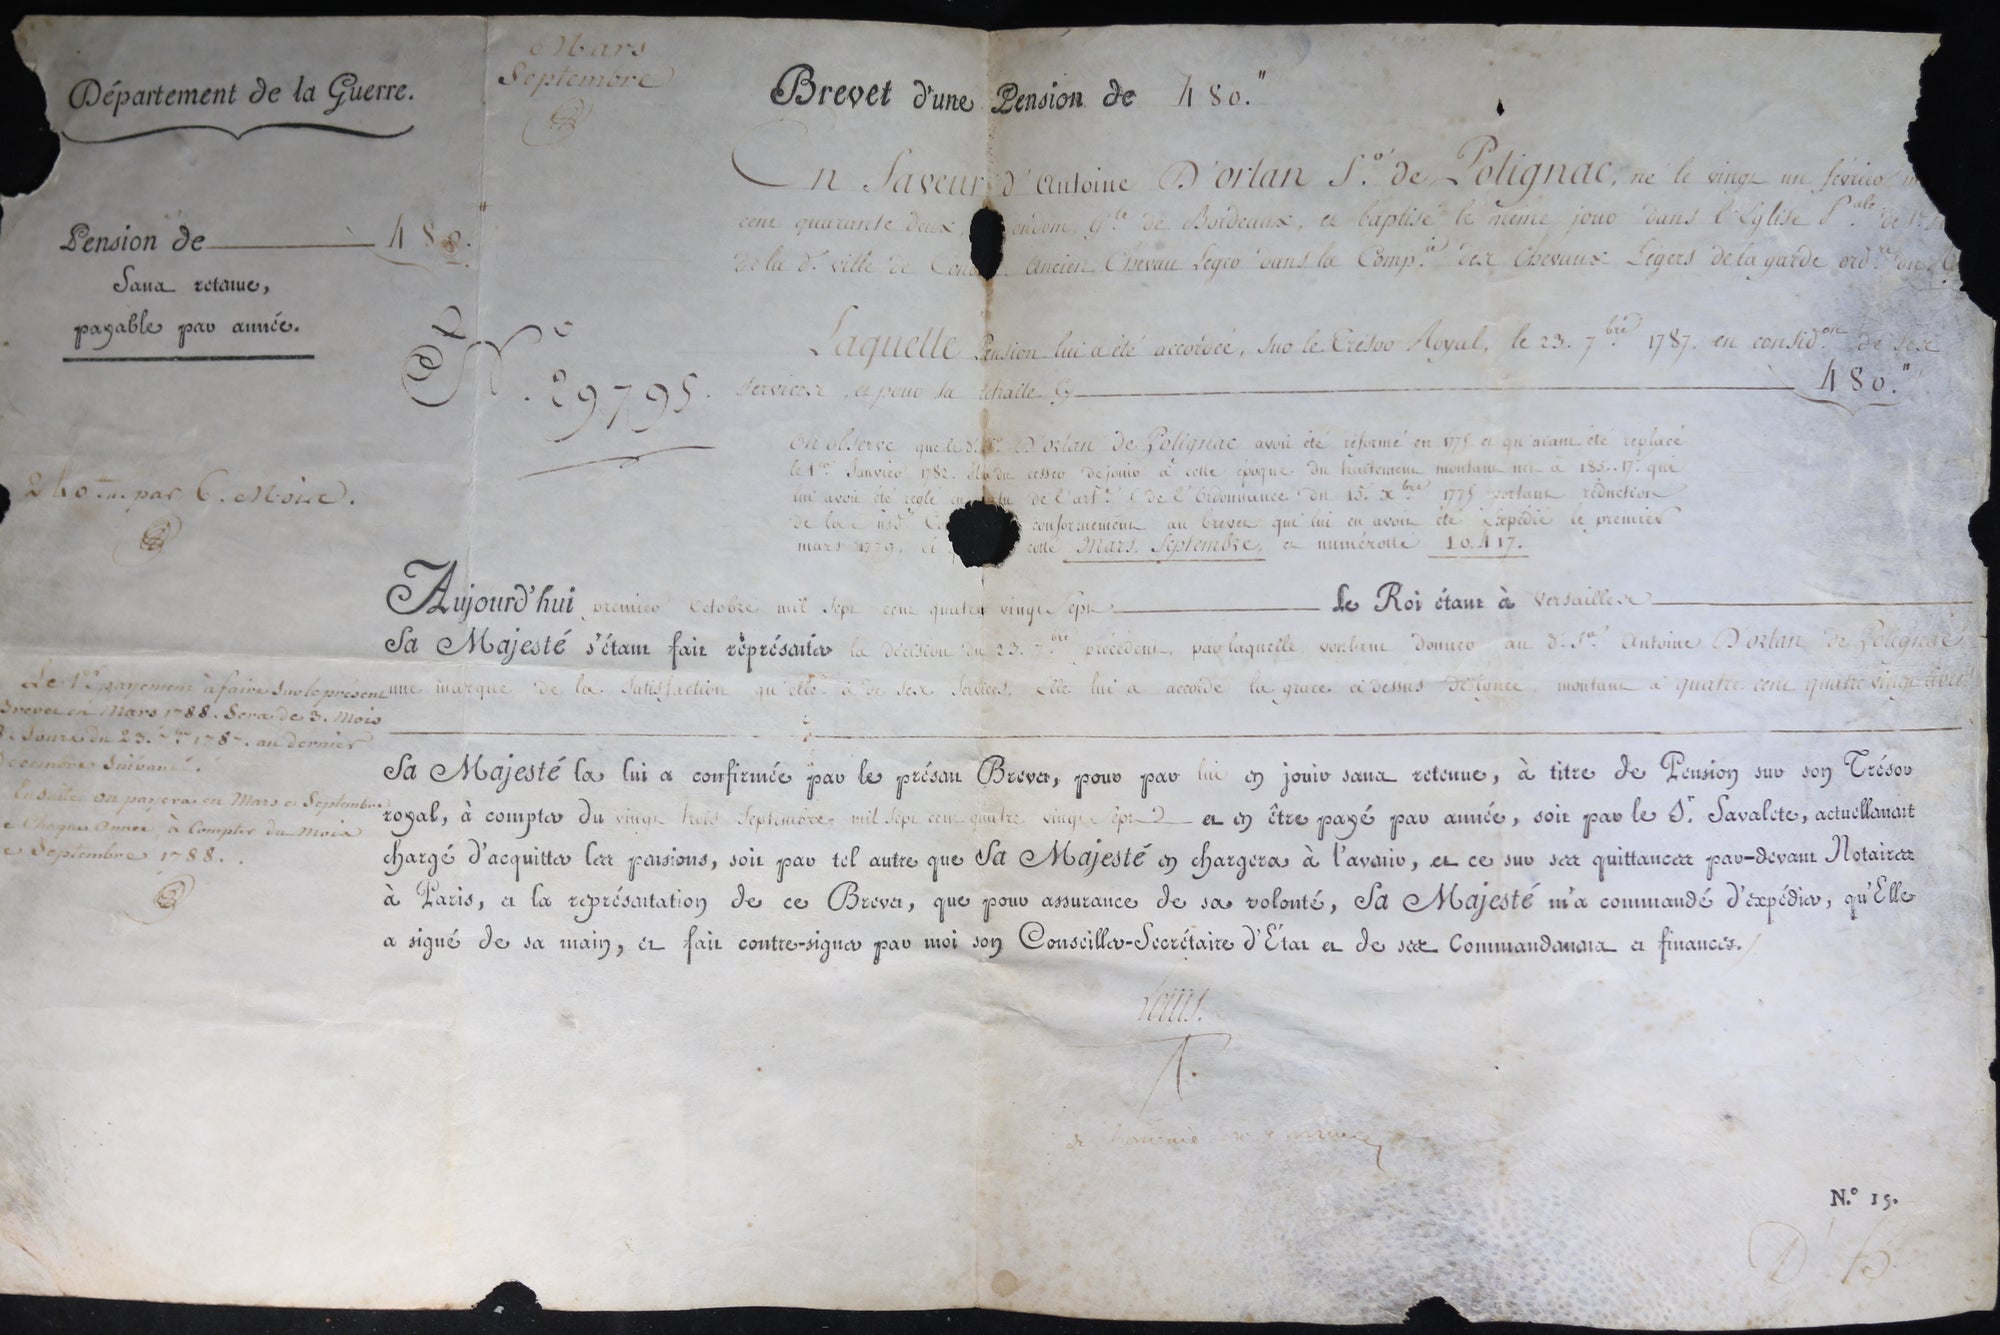 Département de la Guerre.
Mars
Septembre
Brevet d'une Pension de 480."
En faveur d'Antoine D'orlan S.r de Polignac, né le vingt un février
cent quarante deux, ondom, G.té de Bordeaux, et baptisé le même jour dans l'Eglise P.ale de
de la d.e ville de Ancien Chevau Leger dans la Comp.ie des Chevaux Légers de la garde ord.re du
Pension de 480."
Sans retenue,
payable par année.
Laquelle Pension lui a été accordée, sur le Trésor Royal, le 23. 7.bre 1787. en consid.on de ses
services, et pour sa retraite Cy 480."
N.o 29795.
On observe que le d. S.r D'orlan de Polignac avoit été réformé en 1775 et qu'aiant été replacé
le 1.er Janvier 1782. il a du cesser de jouir à cette époque du traitement montant net à 185.. 17. qui
lui avoit été réglé en de l'art. de l'Ordonnance du 15. X.bre 1775 portant réduction
de la conformement au brevet qui lui en avoit été expédié le premier
mars 1779, et cotté Mars, Septembre, et numérotté 10.417.
240.tt par 6. Mois.
Aujourd'hui premier octobre mil sept cent quatre vingt sept Le Roi étant à Versailles
Sa Majesté s'étant fait représenter la décision du 23. 7.bre précédent, par laquelle, voulant donner au d. S.r Antoine D'orlan de Polignac
une marque de la satisfaction qu'elle a de ses services, Elle lui a accordé la grace ci dessus désignée, montant à quatre cent quatre vingt livres
Le 1.er payement à faire sur le présent
Brevet en Mars 1788. Sera de 3. Mois
8. Jours du 23. 7.bre 1787. au dernier
Décembre suivant.
Ensuite on payera en Mars et Septembre
de Chaque Année, à Compter du Mois
de Septembre 1788.
Sa Majesté la lui a confirmée par le présent Brevet, pour par lui en jouir sans retenue, à titre de Pension sur son Trésor
royal, à compter du vingt trois Septembre mil sept cent quatre vingt sept et en être payé par année, soit par le S.r Savalete, actuellement
chargé d'acquitter les pensions, soit par tel autre que Sa Majesté en chargera à l'avenir, et ce sur ses quittances par-devant Notaires
à Paris, et la représentation de ce Brevet, que pour assurance de sa volonté, Sa Majesté m'a commandé d'expédier, qu'Elle
a signé de sa main, et fait contre-signer par moi son Conseiller-Secrétaire d'État et de ses Commandemens et finances.
Louis.
N.o 15.